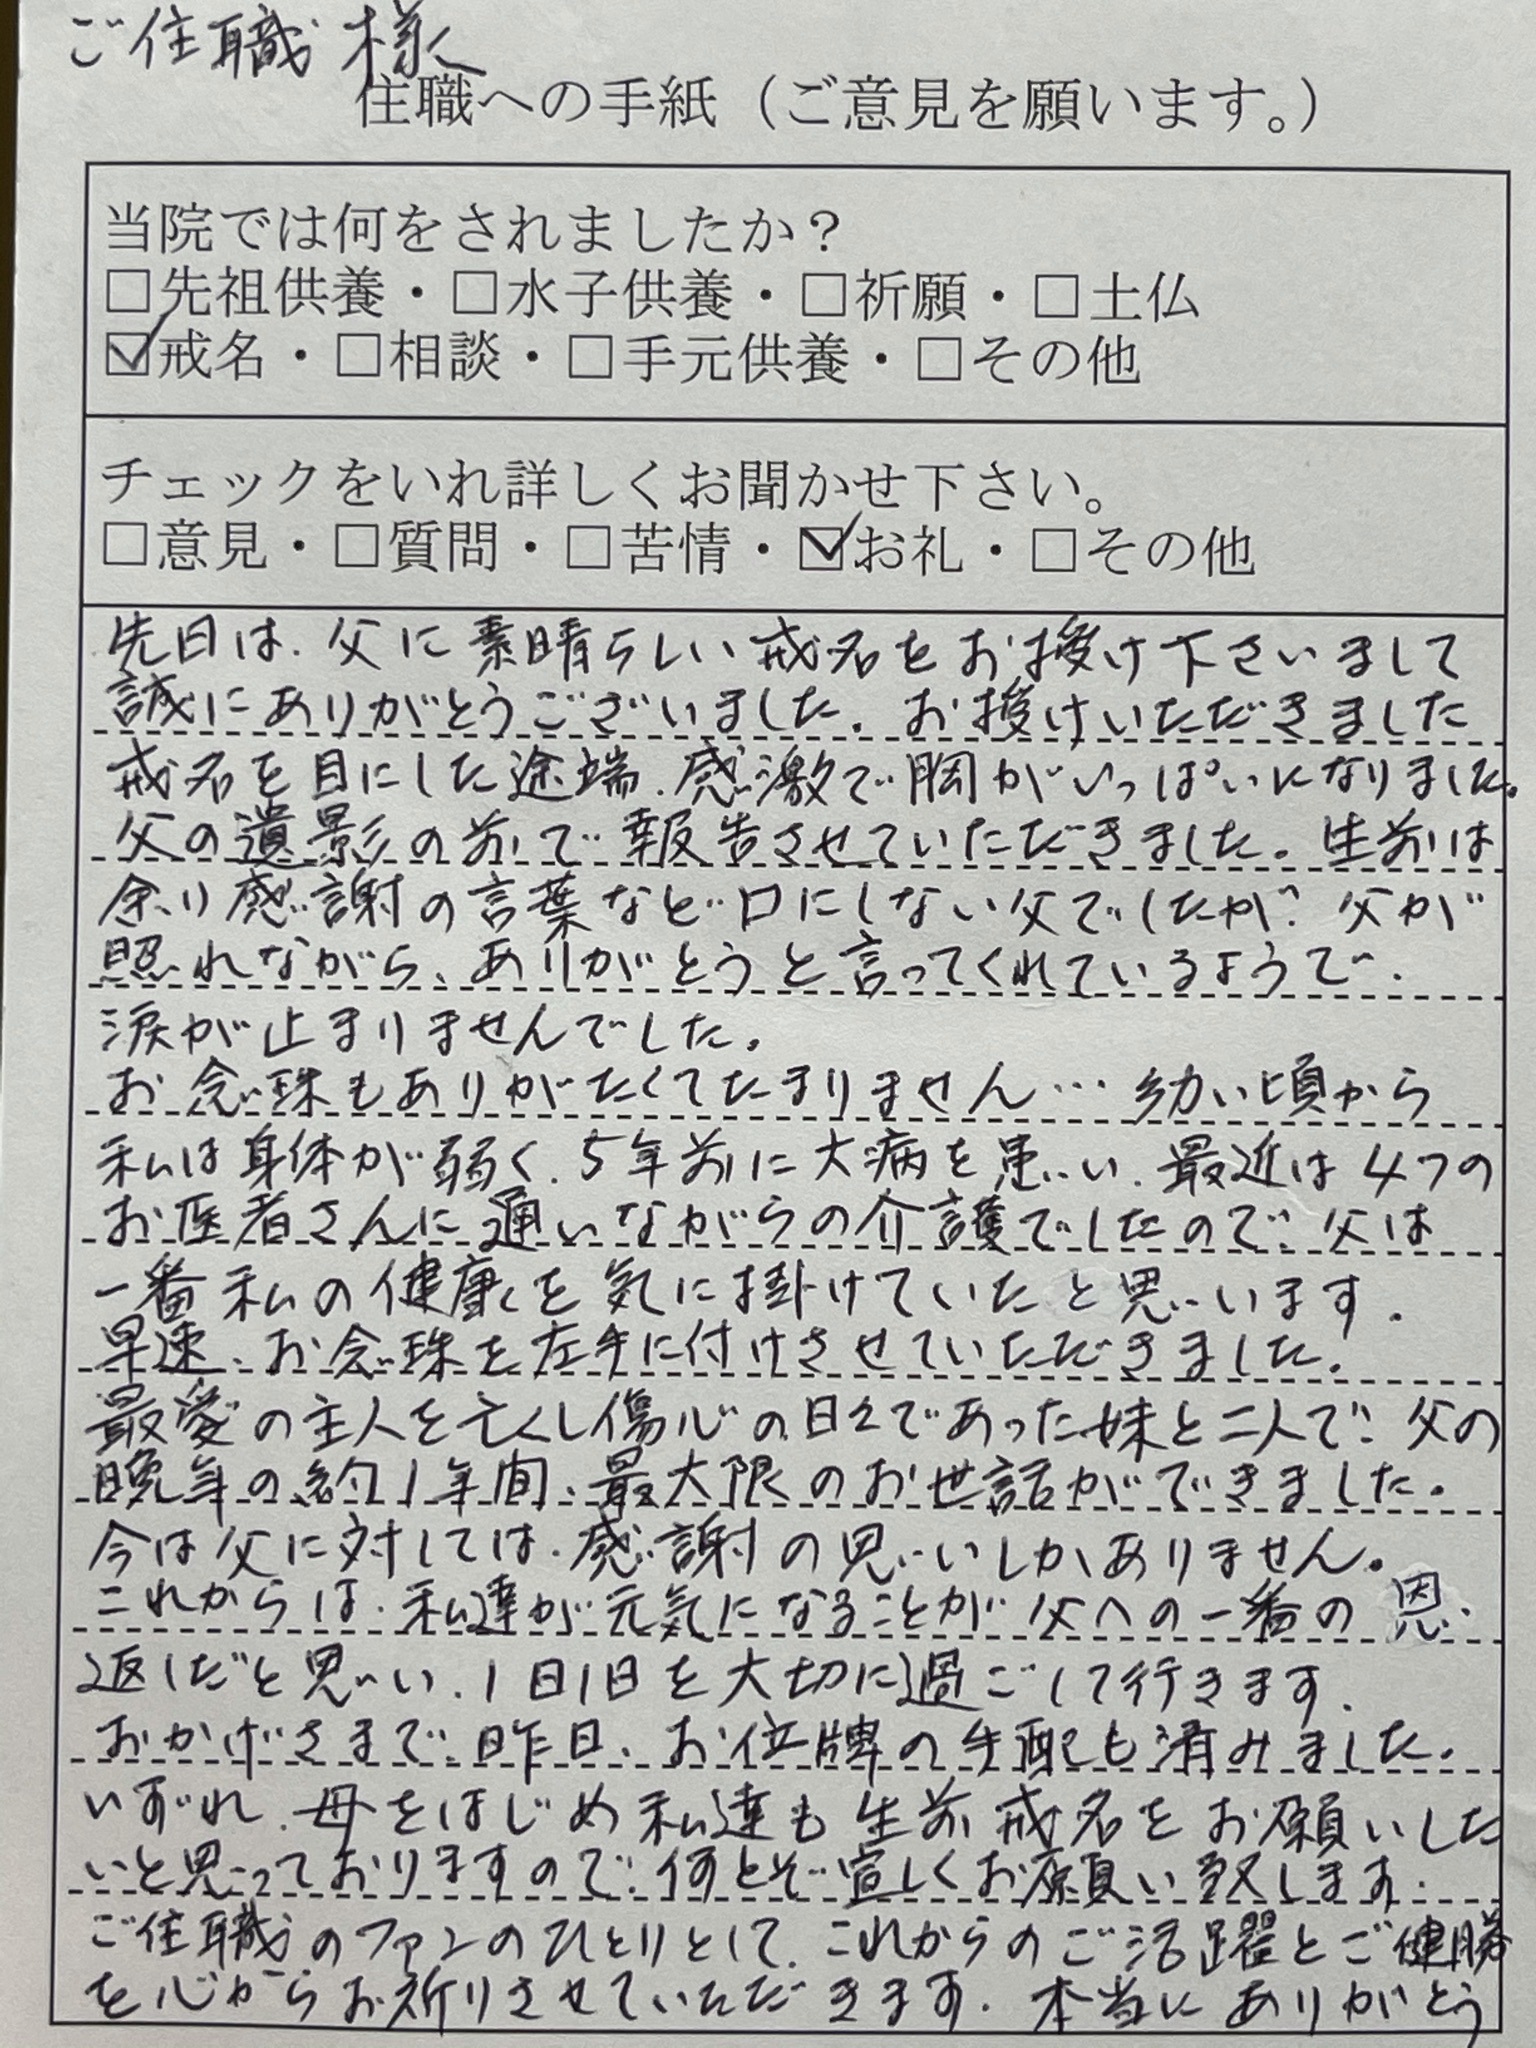 ご住職 様
住職への手紙（ご意見を願います。）
当院では何をされましたか？
□先祖供養・□水子供養・□祈願・□土仏
☑戒名・□相談・□手元供養・□その他
チェックをいれ詳しくお聞かせ下さい。
□意見・□質問・□苦情・☑お礼・□その他
先日は、父に素晴らしい戒名をお授け下さいまして
誠にありがとうございました。お授けいただきました
戒名を目にした途端、感激で胸がいっぱいになりました。
父の遺影の前で報告させていただきました。生前は
余り感謝の言葉など口にしない父でしたが、父が
照れながら、ありがとうと言ってくれているようで、
涙が止まりませんでした。
お念珠もありがたくてたまりません…幼い頃から
私は身体が弱く、5年前に大病を患い、最近は4つの
お医者さんに通いながらの介護でしたので、父は
一番私の健康を気に掛けていたと思います。
早速、お念珠を左手に付けさせていただきました。
最愛の主人を亡くし傷心の日々であった妹と二人で、父の
晩年の約1年間、最大限のお世話ができました。
今は父に対しては、感謝の思いしかありません。
これからは、私達が元気になることが父への一番の恩
返しだと思い、1日1日を大切に過ごして行きます。
おかげさまで、昨日、お位牌の手配も済みました。
いずれ、母をはじめ私達も生前戒名をお願いした
いと思っておりますので、何とぞ宜しくお願い致します。
ご住職のファンのひとりとして、これからのご活躍とご健勝
を心からお祈りさせていただきます。本当にありがとう